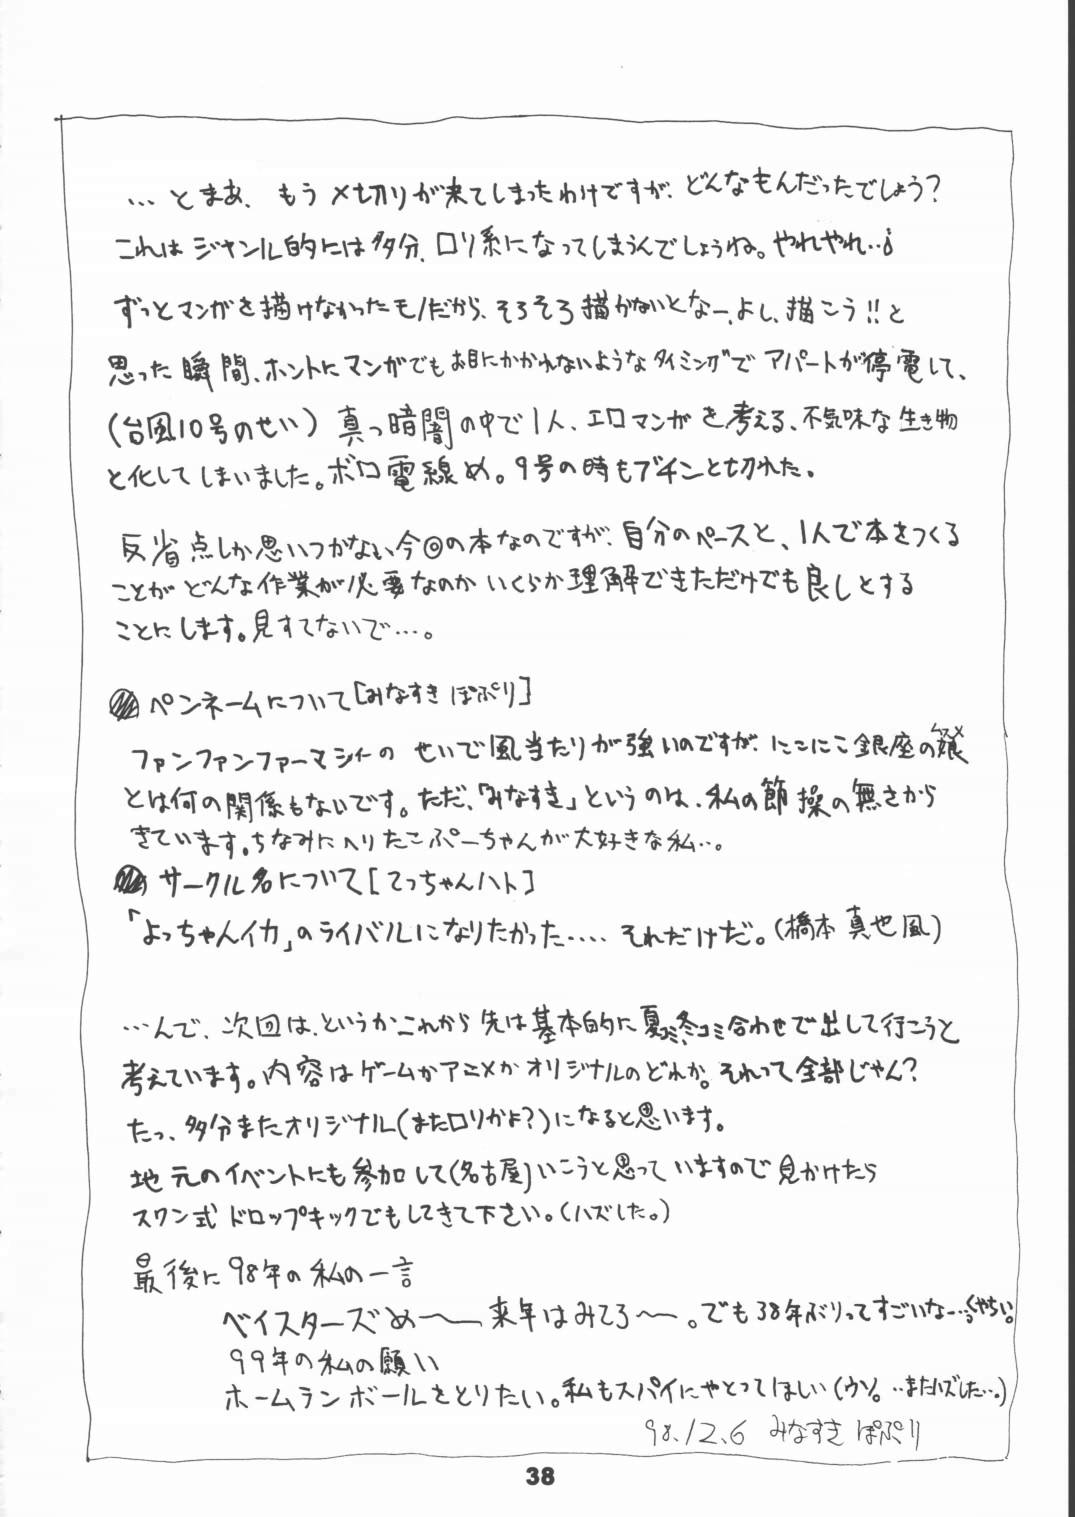 …とまあ、もう〆切りが来てしまったわけですが、どんなもんだったでしょう？
これはジャンル的には多分、ロリ系になってしまうんでしょうね。やれやれ…
ずっとマンガを描けなかったモノだから、そろそろ描かないとなー、よし、描こう!!と
思った瞬間、ホントにマンガでもお目にかかれないようなタイミングでアパートが停電して、
(台風10号のせい) 真っ暗闇の中で1人、エロマンガを考える、不気味な生き物
と化してしまいました。ボロ電線め。9号の時もブチンと切れた。
反省点しか思いつかない今回の本なのですが、自分のペースと、1人で本をつくる
ことがどんな作業が必要なのかいくらか理解できただけでも良しとする
ことにします。見すてないで…。
ペンネームについて[みなすき ぽぷり]
ファンファンファーマシィーのせいで風当たりが強いのですが、にこにこ銀座の娘ムスメ
とは何の関係もないです。ただ、「みなすき」というのは、私の節操の無さから
きています。ちなみにへりたこぷーちゃんが大好きな私…。
サークル名について[てっちゃんハト]
「よっちゃんイカ」のライバルになりたかった…… それだけだ。(橋本真也風)
…んで、次回は、というかこれから先は基本的に夏コミ、冬コミ合わせで出して行こうと
考えています。内容はゲームかアニメかオリジナルのどれか。それって全部じゃん？
たっ、多分またオリジナル(またロリかよ？)になると思います。
地元のイベントにも参加して(名古屋)いこうと思っていますので見かけたら
スワン式ドロップキックでもしてきて下さい。(ハズした。)
最後に98年の私の一言
ベイスターズめ〜 来年はみてろ〜。でも38年ぶりってすごいな…くやちい。
99年の私の願い
ホームランボールをとりたい。私もスパイにやとってほしい(ウソ。…またハズした…。)
98.12.6 みなすき ぽぷり
38